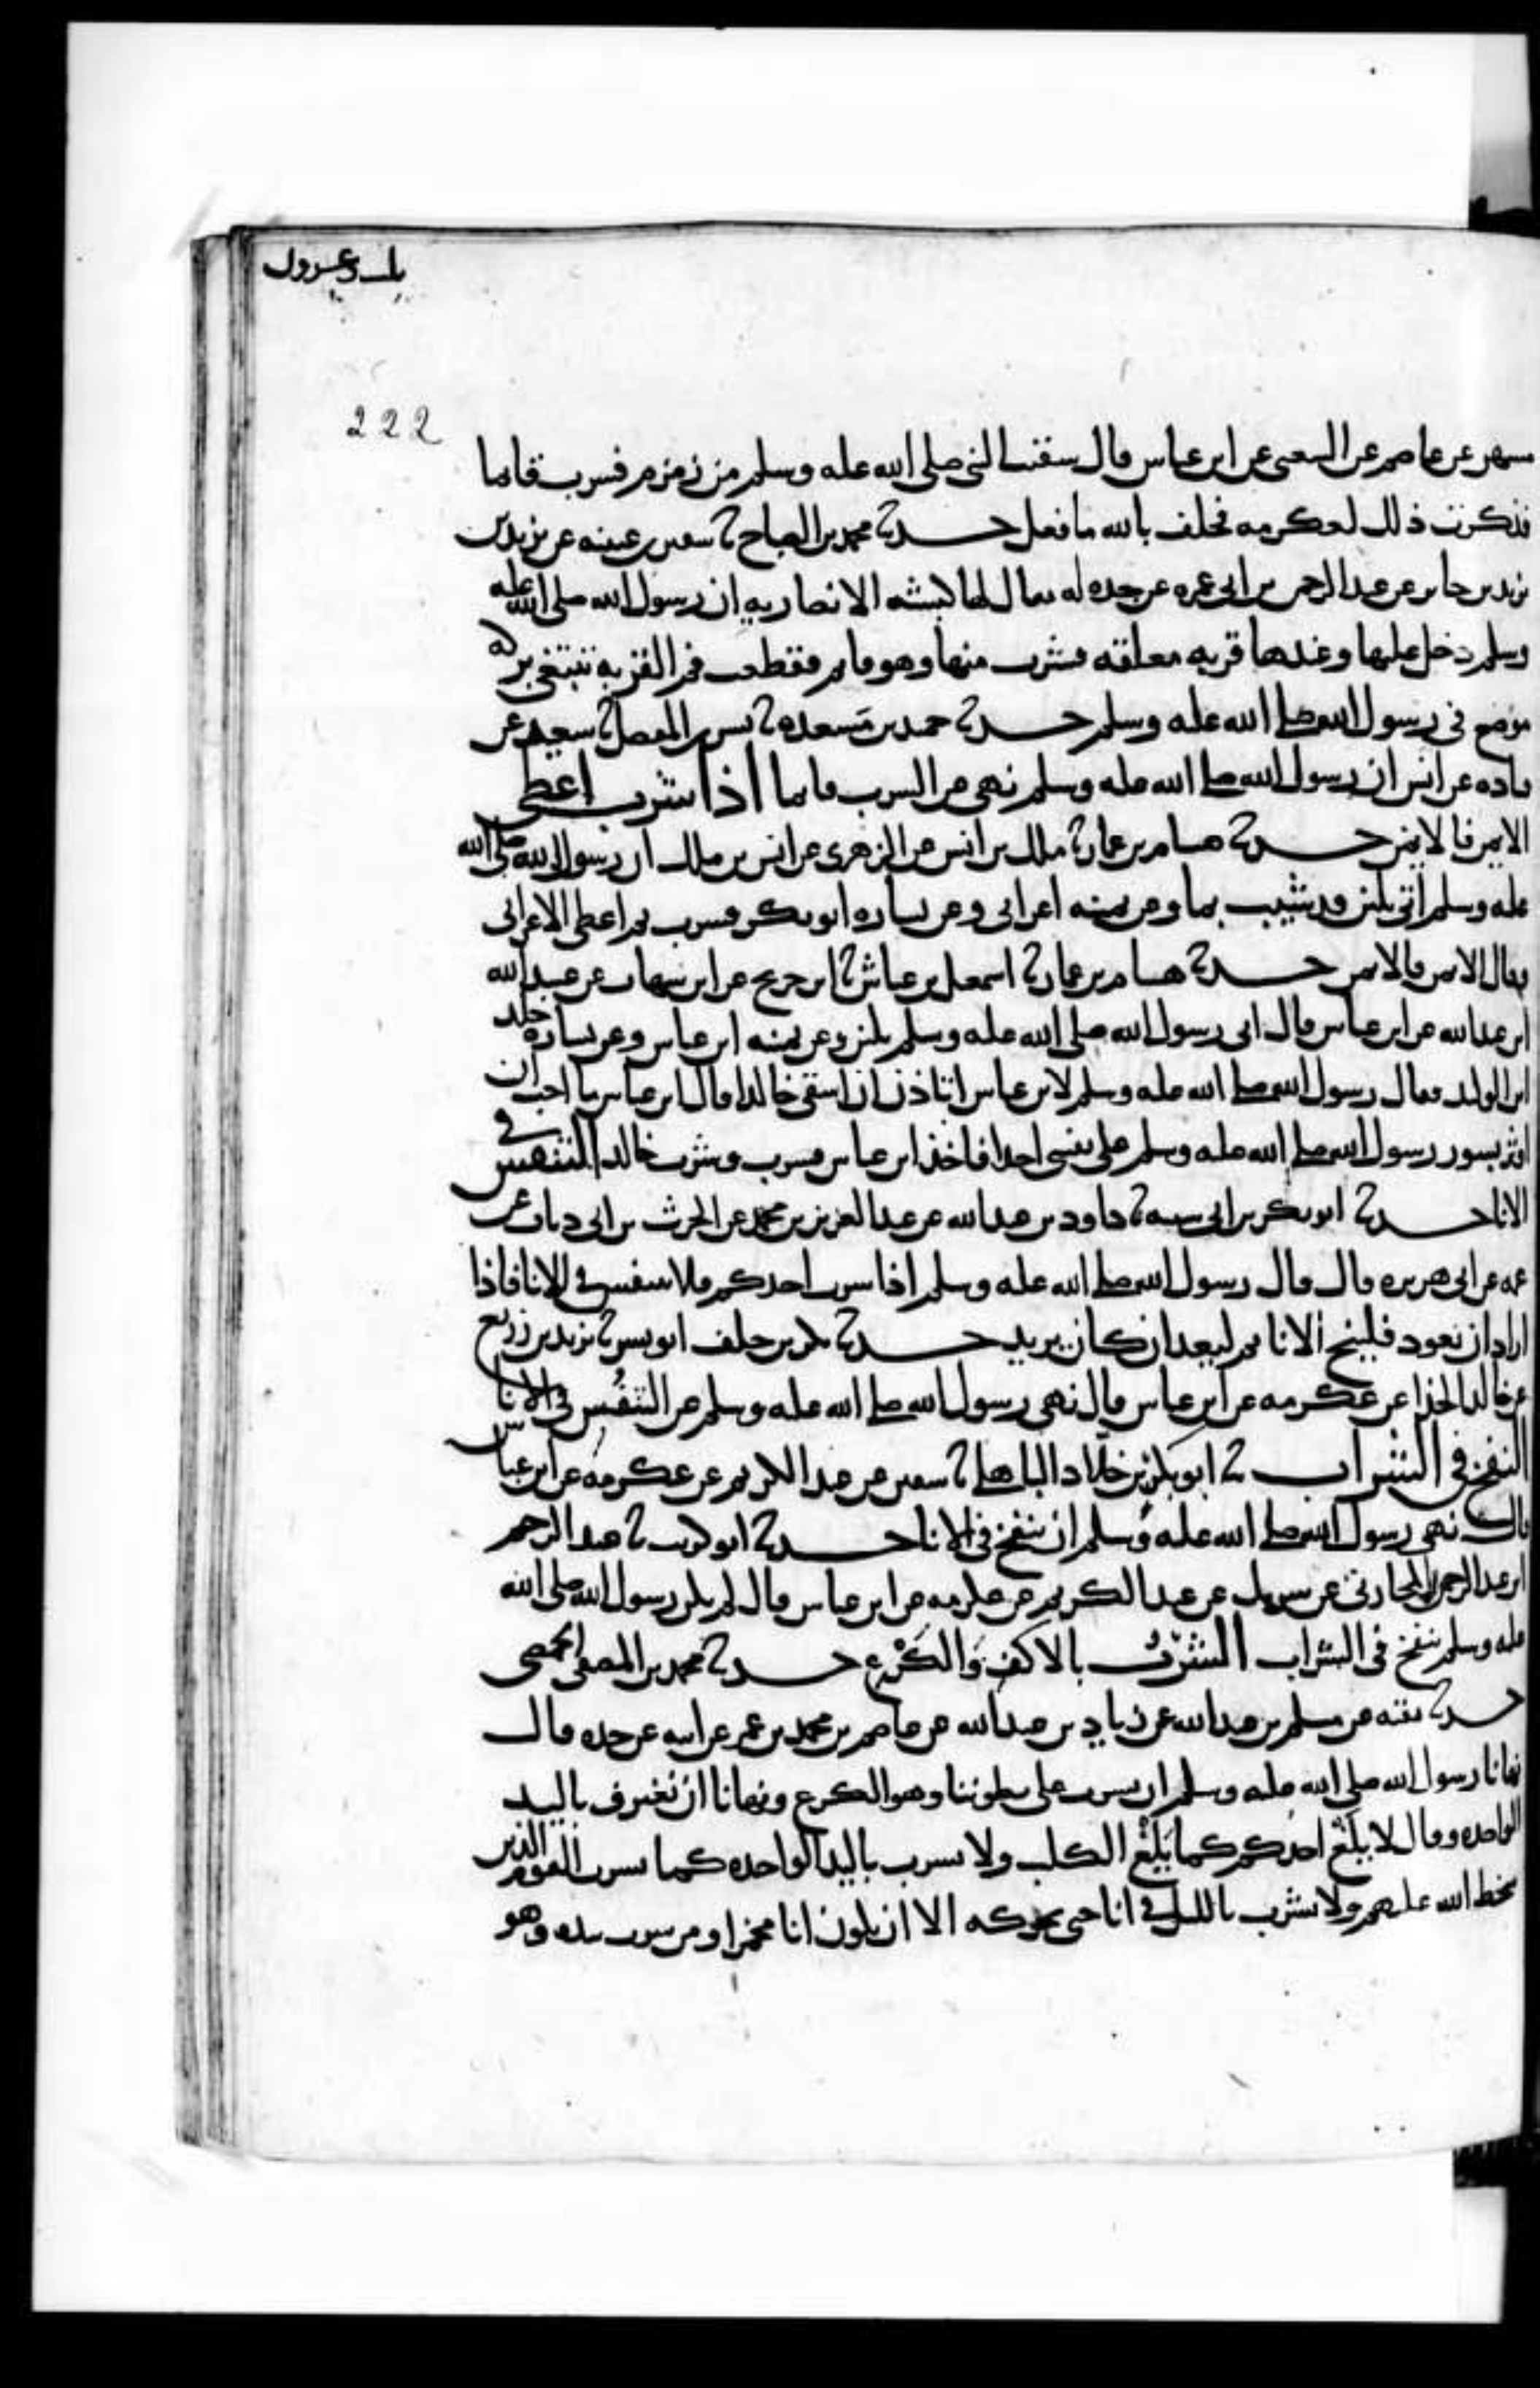 222
مسهر عن عاصم عن الشعبي عن ابن عباس قال سقيت النبي صلى الله عليه وسلم من زمزم فشرب قايما
فذكرت ذلك لعكرمه فحلف بالله ما فعل حدثنا محمد بن الصباح ثنا سفين بن عيينه عن يزيد بن
يزيد بن جابر عن عبد الرحمن بن ابي عمره عن جده له يقال لها كبشه الانصاريه ان رسول الله صلى الله عليه
وسلم دخل عليها وعندها قربه معلقه فشرب منها وهو قايم فقطعت فم القربه تبتغي بركه
موضع في رسول الله صلى الله عليه وسلم حدثنا حميد بن مسعده ثنا بشر بن المفضل ثنا سعيد عن
قتاده عن انس ان رسول الله صلى الله عليه وسلم نهى عن الشرب قايما اذا شرب اعطى
الايمن فالايمن حدثنا هشام بن عمار ثنا ملك بن انس عن الزهري عن انس بن ملك ان رسول الله صلى الله
عليه وسلم اتي بلبن قد شيب بما وعن يمينه اعرابي وعن يساره ابو بكر فشرب ثم اعطى الاعرابي
وقال الايمن فالايمن حدثنا هشام بن عمار ثنا اسمعيل بن عياش ثنا ابن جريج عن ابن شهاب عن عبيد الله
ابن عبد الله عن ابن عباس قال اتي رسول الله صلى الله عليه وسلم بلبن وعن يمينه ابن عباس وعن يساره خلد
ابن الوليد فقال رسول الله صلى الله عليه وسلم لابن عباس اتاذن ان اسقي خالدا قال ابن عباس ما احب ان
اوثر بسور رسول الله صلى الله عليه وسلم على نفسي احدا فاخذ ابن عباس فشرب وشرب خالد التنفس في
الانا حدثنا ابو بكر بن ابي شيبه ثنا داود بن عبد الله عن عبد العزيز بن محمد عن الحرث بن ابي ذباب عن
عمه عن ابي هريره قال قال رسول الله صلى الله عليه وسلم اذا شرب احدكم فلا يتنفس في الانا فاذا
اراد ان يعود فلينح الانا ثم ليعد ان كان يريد حدثنا بكر بن خلف ابو بشر ثنا يزيد بن زريع
عن خالد الحذا عن عكرمه عن ابن عباس قال نهى رسول الله صلى الله عليه وسلم عن التنفس في الانا
النفخ في الشراب ثنا ابو بكر بن خلاد الباهلي ثنا سفين عن عبد الكريم عن عكرمه عن ابن عباس
قال نهى رسول الله صلى الله عليه وسلم ان ينفخ في الانا حدثنا ابو كريب ثنا عبد الرحيم
ابن عبد الرحمن المحاربي عن شريك عن عبد الكريم عن عكرمه عن ابن عباس قال لم يكن رسول الله صلى الله
عليه وسلم ينفخ في الشراب الشرب بالاكف والكرع حدثنا محمد بن المصفى الحمصي
حدثنا بقيه عن مسلم بن عبد الله عن زياد بن عبد الله عن عاصم بن محمد بن عمر عن ابيه عن جده قال
نهانا رسول الله صلى الله عليه وسلم ان نشرب على بطوننا وهو الكرع ونهانا ان نغترف باليد
الواحده وقال لا يلغ احدكم كما يلغ الكلب ولا يشرب باليد الواحده كما يشرب القوم الذين
سخط الله عليهم ولا يشرب بالليل في انا حتى يحركه الا ان يكون انا مخمرا ومن شرب بيده وهو